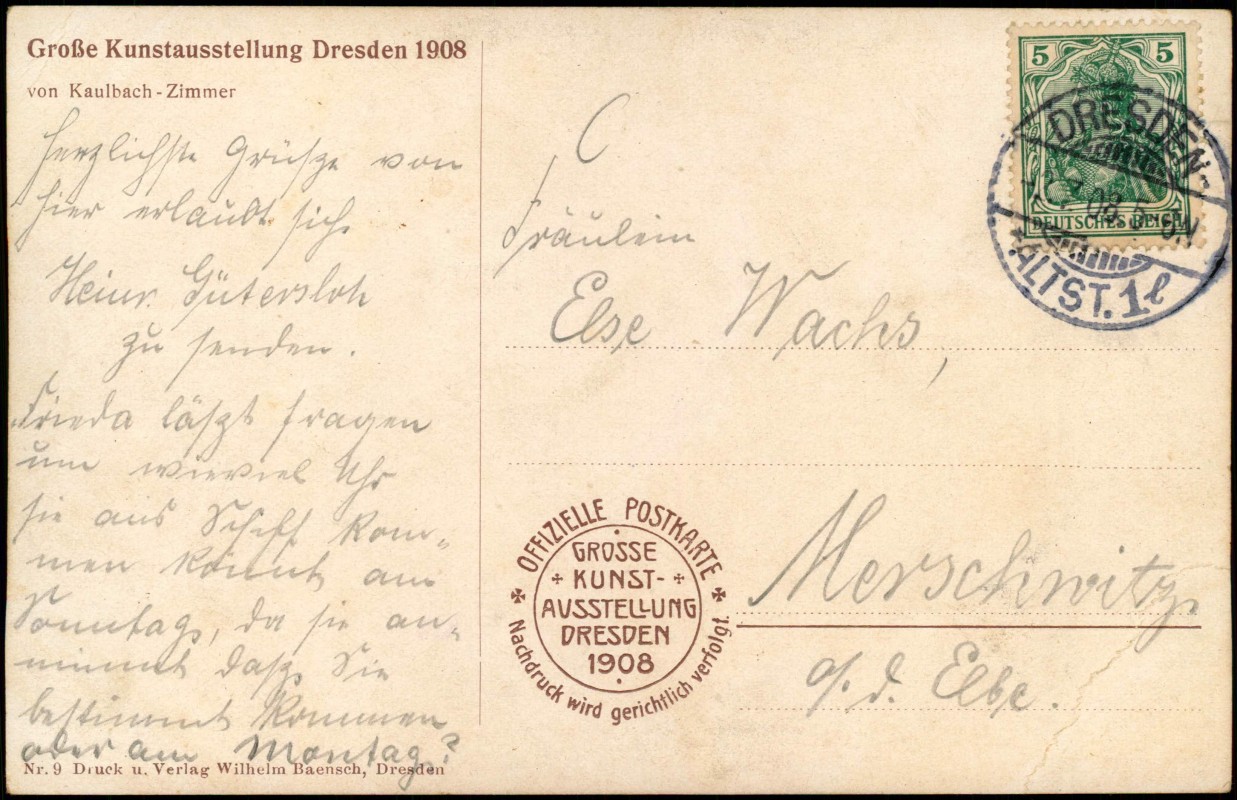 Große Kunstausstellung Dresden 1908
von Kaulbach-Zimmer
Herzlichste Grüsze von
hier erlaubt sich
Heinr. Gütersloh
zu senden.
Frieda läszt fragen
um wieviel Uhr
sie aus Schiff kom„
men könnt am
Sonntag, da sie an„
nimmt dasz Sie
bestimmt kommen
oder am Montag?
Nr. 9 Druck u. Verlag Wilhelm Baensch, Dresden
5 5
DEUTSCHES REICH
DRESDEN-
08 5-6N
ALTST. 1 l
Fräulein
Else Wachs,
Merschwitz
a/d. Elbe.
OFFIZIELLE POSTKARTE
GROSSE
KUNST-
AUSSTELLUNG
DRESDEN
1908
Nachdruck wird gerichtlich verfolgt.